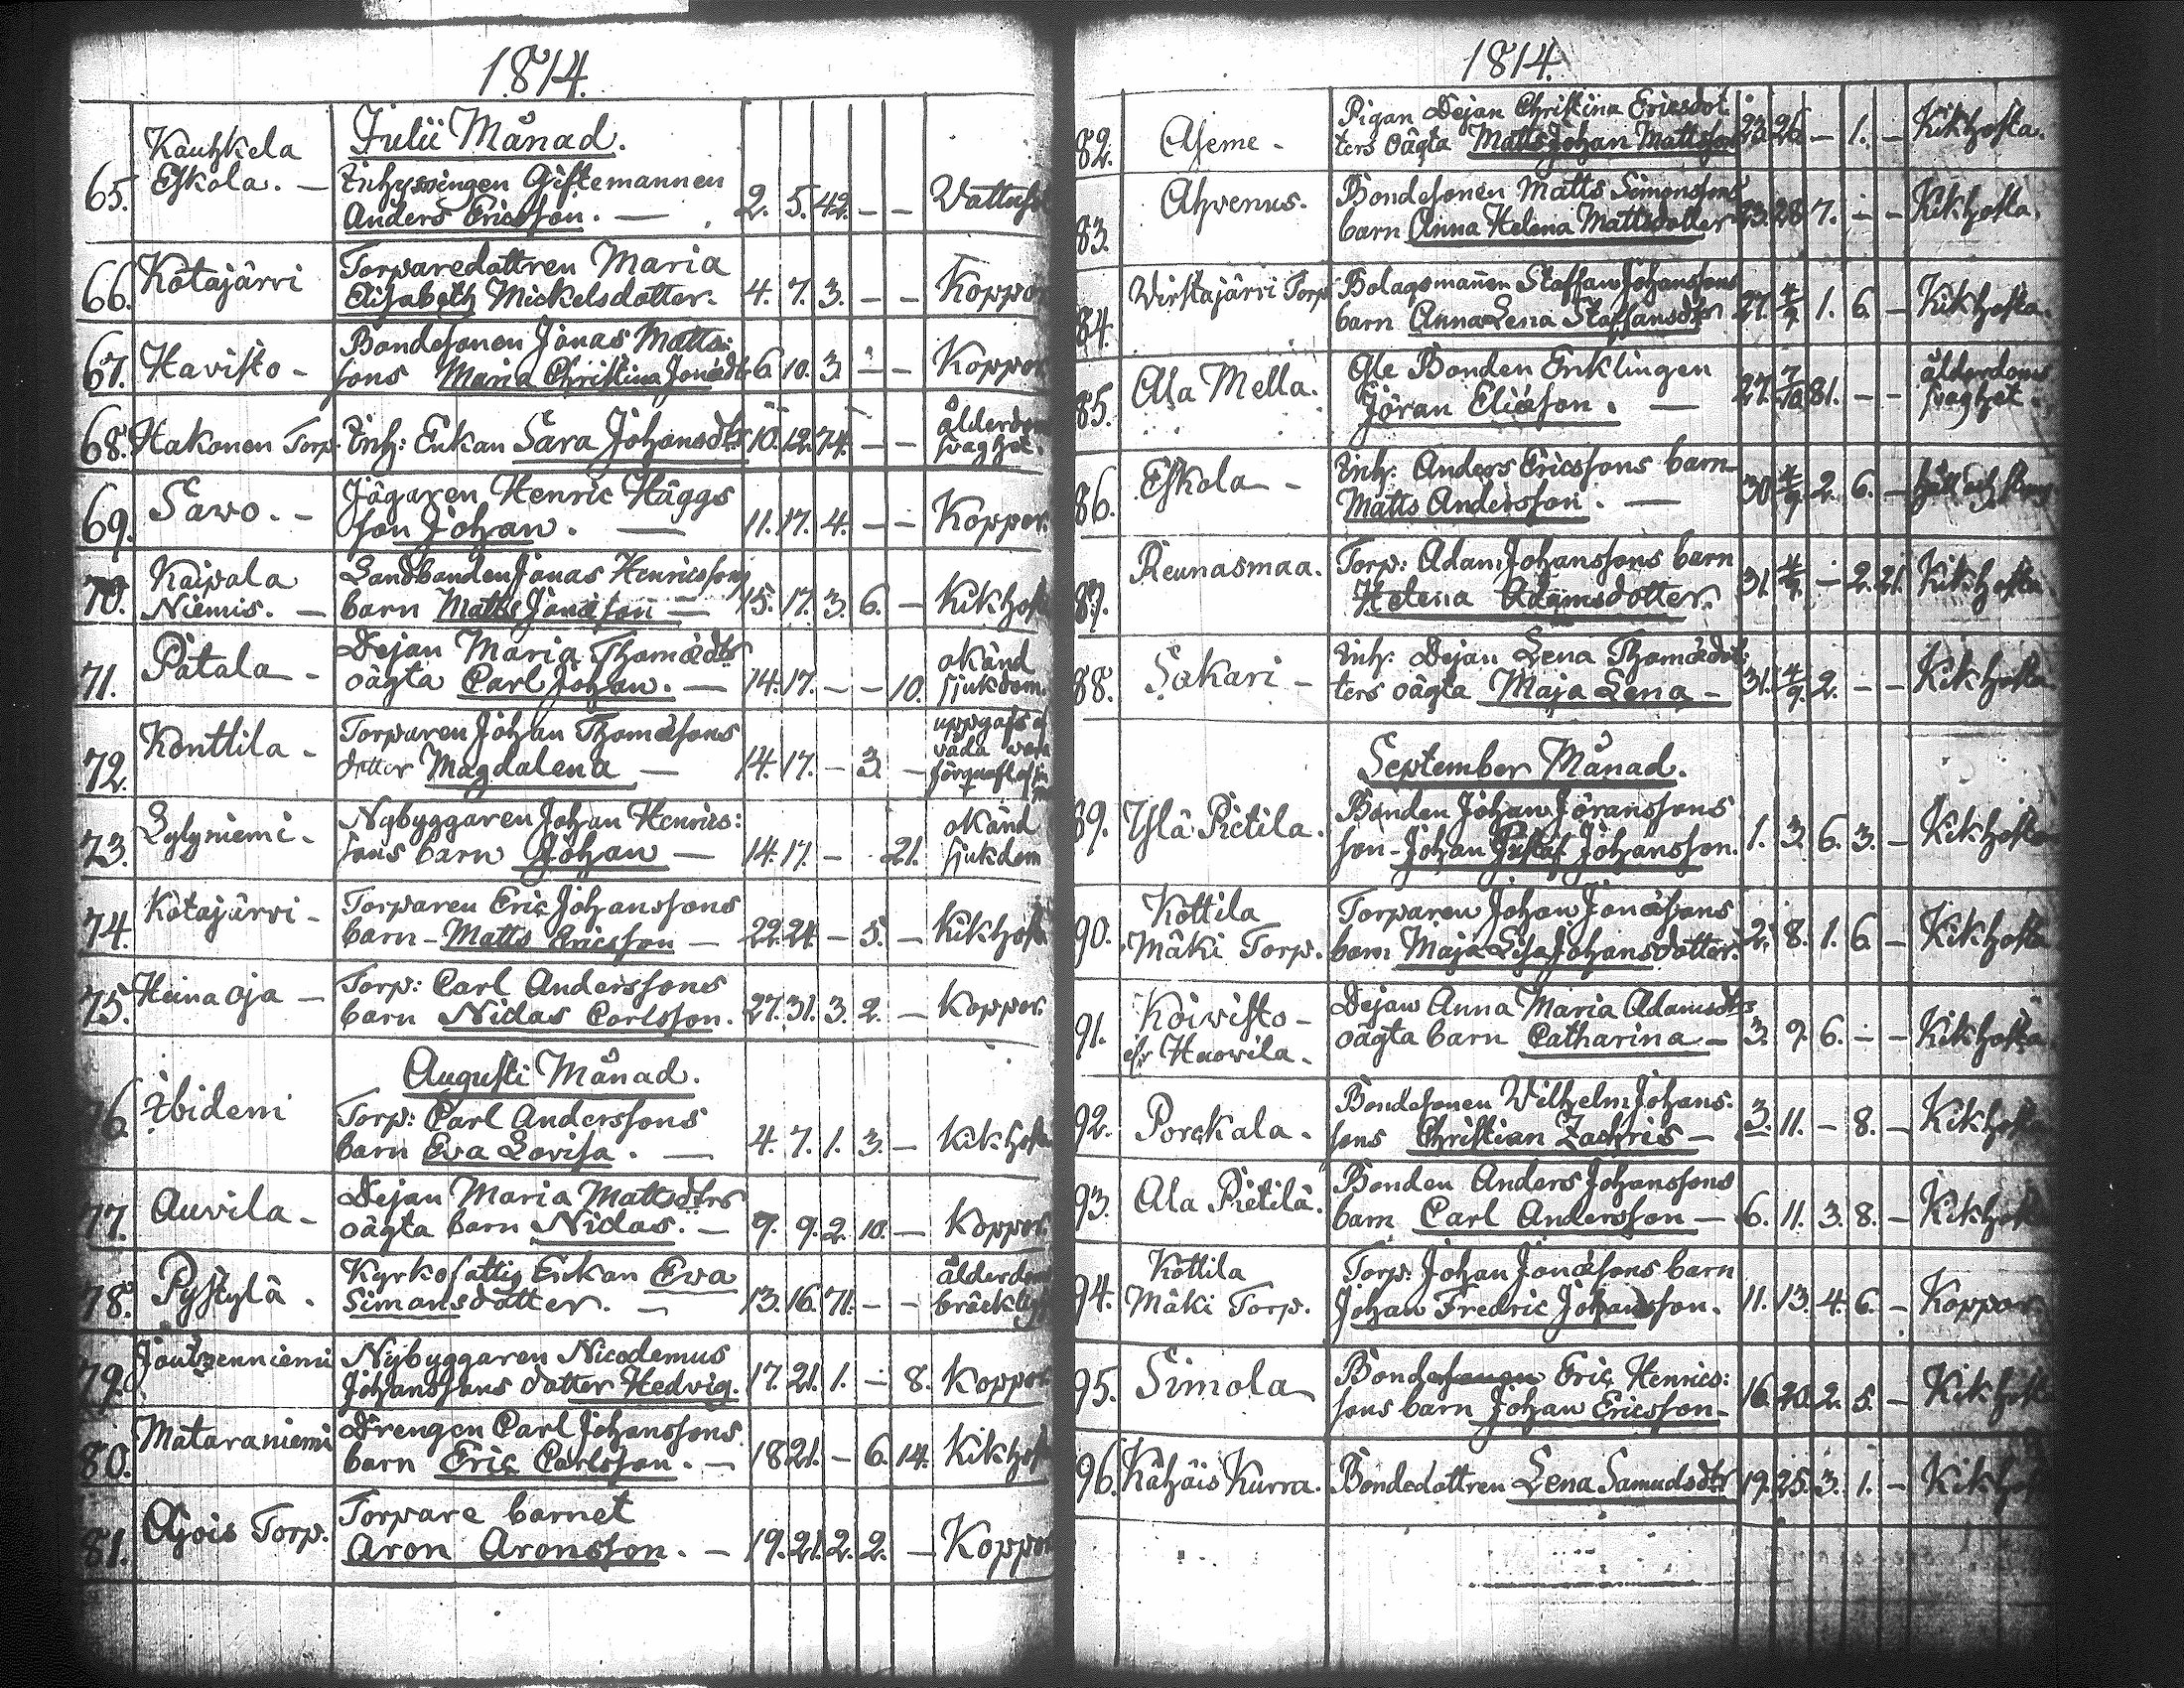 1814.
Julii Månad.
65. Kauhkela
Eskola. — Inhysingen Giftemannen
Anders Ericsson. — 2. 5. 42. — —
66. Kotajärvi Torparedottren Maria
Elisabeth Mickelsdotter. 4. 7. 3. — — Koppor
67. Havisto - Bondesonen Jonas Matts:
sons Maria Christina Jonædr 6. 10. 3. — — Koppor.
68. Hakonen Torp. Inh: Enkan Sara Johansdtr 10. 12. 74. — — ålderdom
svaghet.
69. Savo. - Jägaren Henric Häggs
son Johan. — 11. 17. 4. — — Koppor.
70. Kaipala Landbonden Jonas Henricssons
Niemis. — barn Matts Jonæson — 15. 17. 3. 6. — Kikhosta
71. Patala - Dejan Maria Thomædtrs
oägta Carl Johan. — 14. 17. — — 10. okänd
sjukdom.
72. Konttila - Torparen Johan Thomæsons
dotter Magdalena — 14. 17. — 3. — uppgafs af
våda vara
73. Lylyniemi - Nybyggaren Johan Henrics:
sons barn Johan — 14. 17. — . 21. okänd
sjukdom
74. Kotajärvi - Torparen Eric Johanssons
barn - Matts Ericsson — 22. 24. — 5. — Kikhosta
75. Heina oja — Torp: Carl Anderssons
barn Niclas Carlsson. 27. 31. 3. 2. — Koppor.
Augusti Månad.
76. Ibideni Torp: Carl Anderssons
barn Eva Lovisa. — 4. 7. 1. 3. — Kikhosta
77. Auvila - Dejan Maria Mattsdtrs
oägta barn Niclas. — 7. 9. 2. 10. — Koppor.
78. Pystylä. Kyrkofattig Enkan Eva
Simonsdotter. — 13. 16. 71. — — ålderdoms
bräcklighet
79. Joutzenniemi Nybyggaren Nicodemus
Johanssons dotter Hedvig. 17. 21. 1. — 8. Koppor.
80. Mataraniemi Drengen Carl Johanssons
barn Eric Carlsson. — 18 21. — 6. 14. Kikhosta
81. Ojois Torp. Torpare barnet
Aron Aronsson. — 19. 21. 2. 2. — Koppor
1814.
82. Aseme - Pigan Dejan Christina Ericsdot
ters oägta Matts Johan Mattsson 23. 26. — 1. — Kikhosta.
83. Ahvenus. Bondesonen Matts Simonssons
barn Anna Helena Mattsdotter 23. 28. 7. — — Kikhosta.
84. Virstajärvi Torp Bolagsmannen Staffan Johanssons
barn Anna Lena Staffansdtr 27. 4/9 1. 6. — Kikhosta.
85. Ala Mella. Gle Bonden Enklingen
Jöran Eliæson. — 27. 7/10 81. — — ålderdoms
svaghet.
86. Eskola - Inh: Anders Ericssons barn
Matts Andersson. — 30. 4/9 2. 6. —
87. Reunasmaa. Torp: Adam Johanssons barn
Helena Adamsdotter. 31. 4/9. — 2. 21. Kikhosta.
88. Sakari - Inh: Dejan Lena Thomædot:
ters oägta Maja Lena — 31. 4/9. 2. — — Kikhosta
September Månad.
89. Ylä Pietila. Bonden Johan Jöranssons
son - Johan Gustaf Johansson. 1. 3. 6. 3. — Kikhosta
90. Kottila Torparen Johan Jonæsons
Mäki Torp. barn Maja Lisa Johansdotter. 2. 8. 1. 6. — Kikhosta
91. Koivisto - Dejan Anna Maria Adamsdtrs
Huovila. oägta barn Catharina — 3. 9. 6. — — Kikhosta.
92. Porckala. Bondesonen Wilhelm Johans:
sons Christian Zachris — 3. 11. — 8. — Kikhosta
93. Ala Pietilä. Bonden Anders Johanssons
barn Carl Andersson — 6. 11. 3. 8. — Kikhosta
94. Kottila Torp: Johan Jonæsons barn
Mäki Torp. Johan Fredric Johansson. 11. 13. 4. 6. — Koppor.
95. Simola Bondesonen Eric Henrics:
sons barn Johan Ericsson - 16. 20. 2. 5. — Kikhosta
96. Kähäis Kurra. Bondedottren Lena Samuelsdtr 19. 25. 3. 1. — Kikhosta